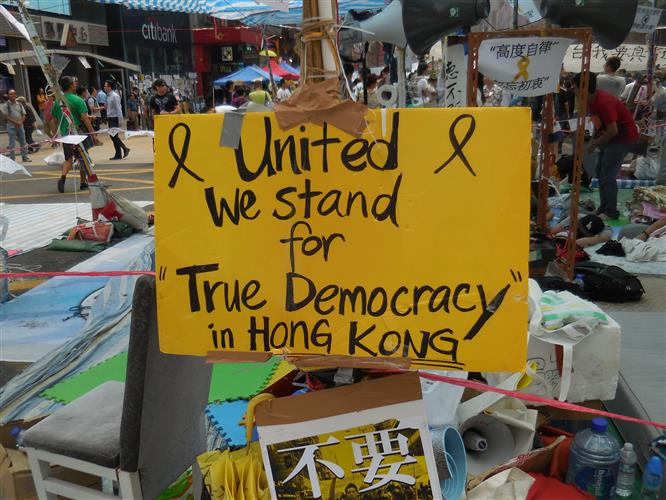 citibank
"高度自律"
勿忘初衷
United
We stand
for
"True Democracy"
in HONG KONG
不要